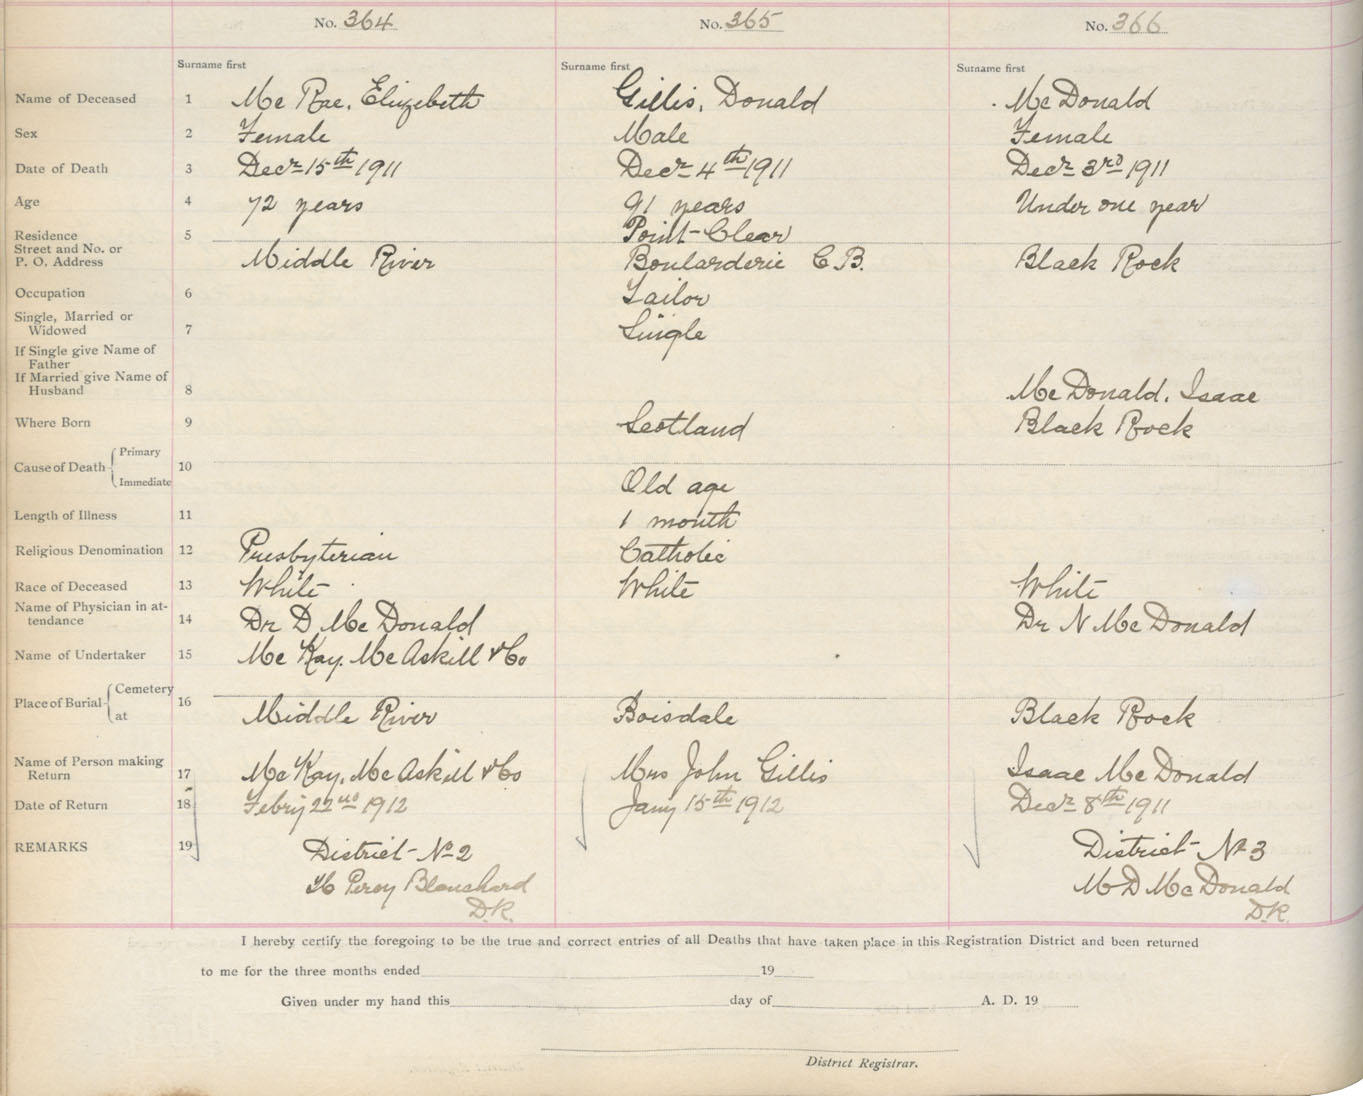 No. 364 No. 365 No. 366
Surname first Surname first Surname first
Name of Deceased 1 Mc Rae, Elizebeth Gillis, Donald Mc Donald
Sex 2 Female Male Female
Date of Death 3 Decr 15th 1911 Decr 4th 1911 Decr 3rd 1911
Age 4 72 years 91 years Under one year
Residence 5 Point Clear
Street and No. or
P. O. Address Middle River Boularderie C.B. Black Rock
Occupation 6 Tailor
Single, Married or
Widowed 7 Single
If Single give Name of
Father
If Married give Name of
Husband 8 Mc Donald, Isaac
Where Born 9 Scotland Black Rock
Cause of Death Primary 10
Immediate Old age
Length of Illness 11 1 month
Religious Denomination 12 Presbyterian Catholic
Race of Deceased 13 White White White
Name of Physician in at-
tendance 14 Dr D Mc Donald Dr N Mc Donald
Name of Undertaker 15 Mc Kay, Mc Askill & Co
Place of Burial Cemetery 16
at Middle River Boisdale Black Rock
Name of Person making
Return 17 Mc Kay, Mc Askill & Co Mrs John Gillis Isaac Mc Donald
Date of Return 18 Febry 22nd 1912 Jany 15th 1912 Decr 8th 1911
REMARKS 19 District No 2 District No 3
H Percy Blanchard M D Mc Donald
D.R. D.R.
I hereby certify the foregoing to be the true and correct entries of all Deaths that have taken place in this Registration District and been returned
to me for the three months ended 19
Given under my hand this day of A. D. 19
District Registrar.